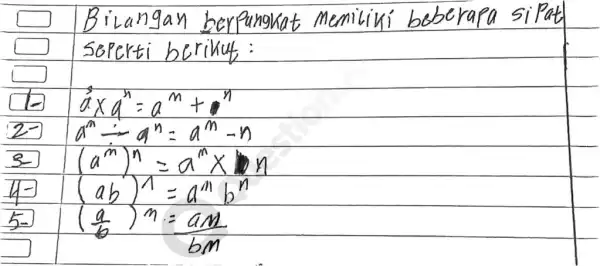 Bilangan berpangkat memiliki beberapa sipat
seperti berikut :
1- a³ x aⁿ = aᵐ + ⁿ
2- aᵐ ÷ aⁿ = aᵐ - n
3- (aᵐ)ⁿ = aᵐ x n
4- (ab)ⁿ = aⁿ bⁿ
5- (a/b)ⁿ = an/bn